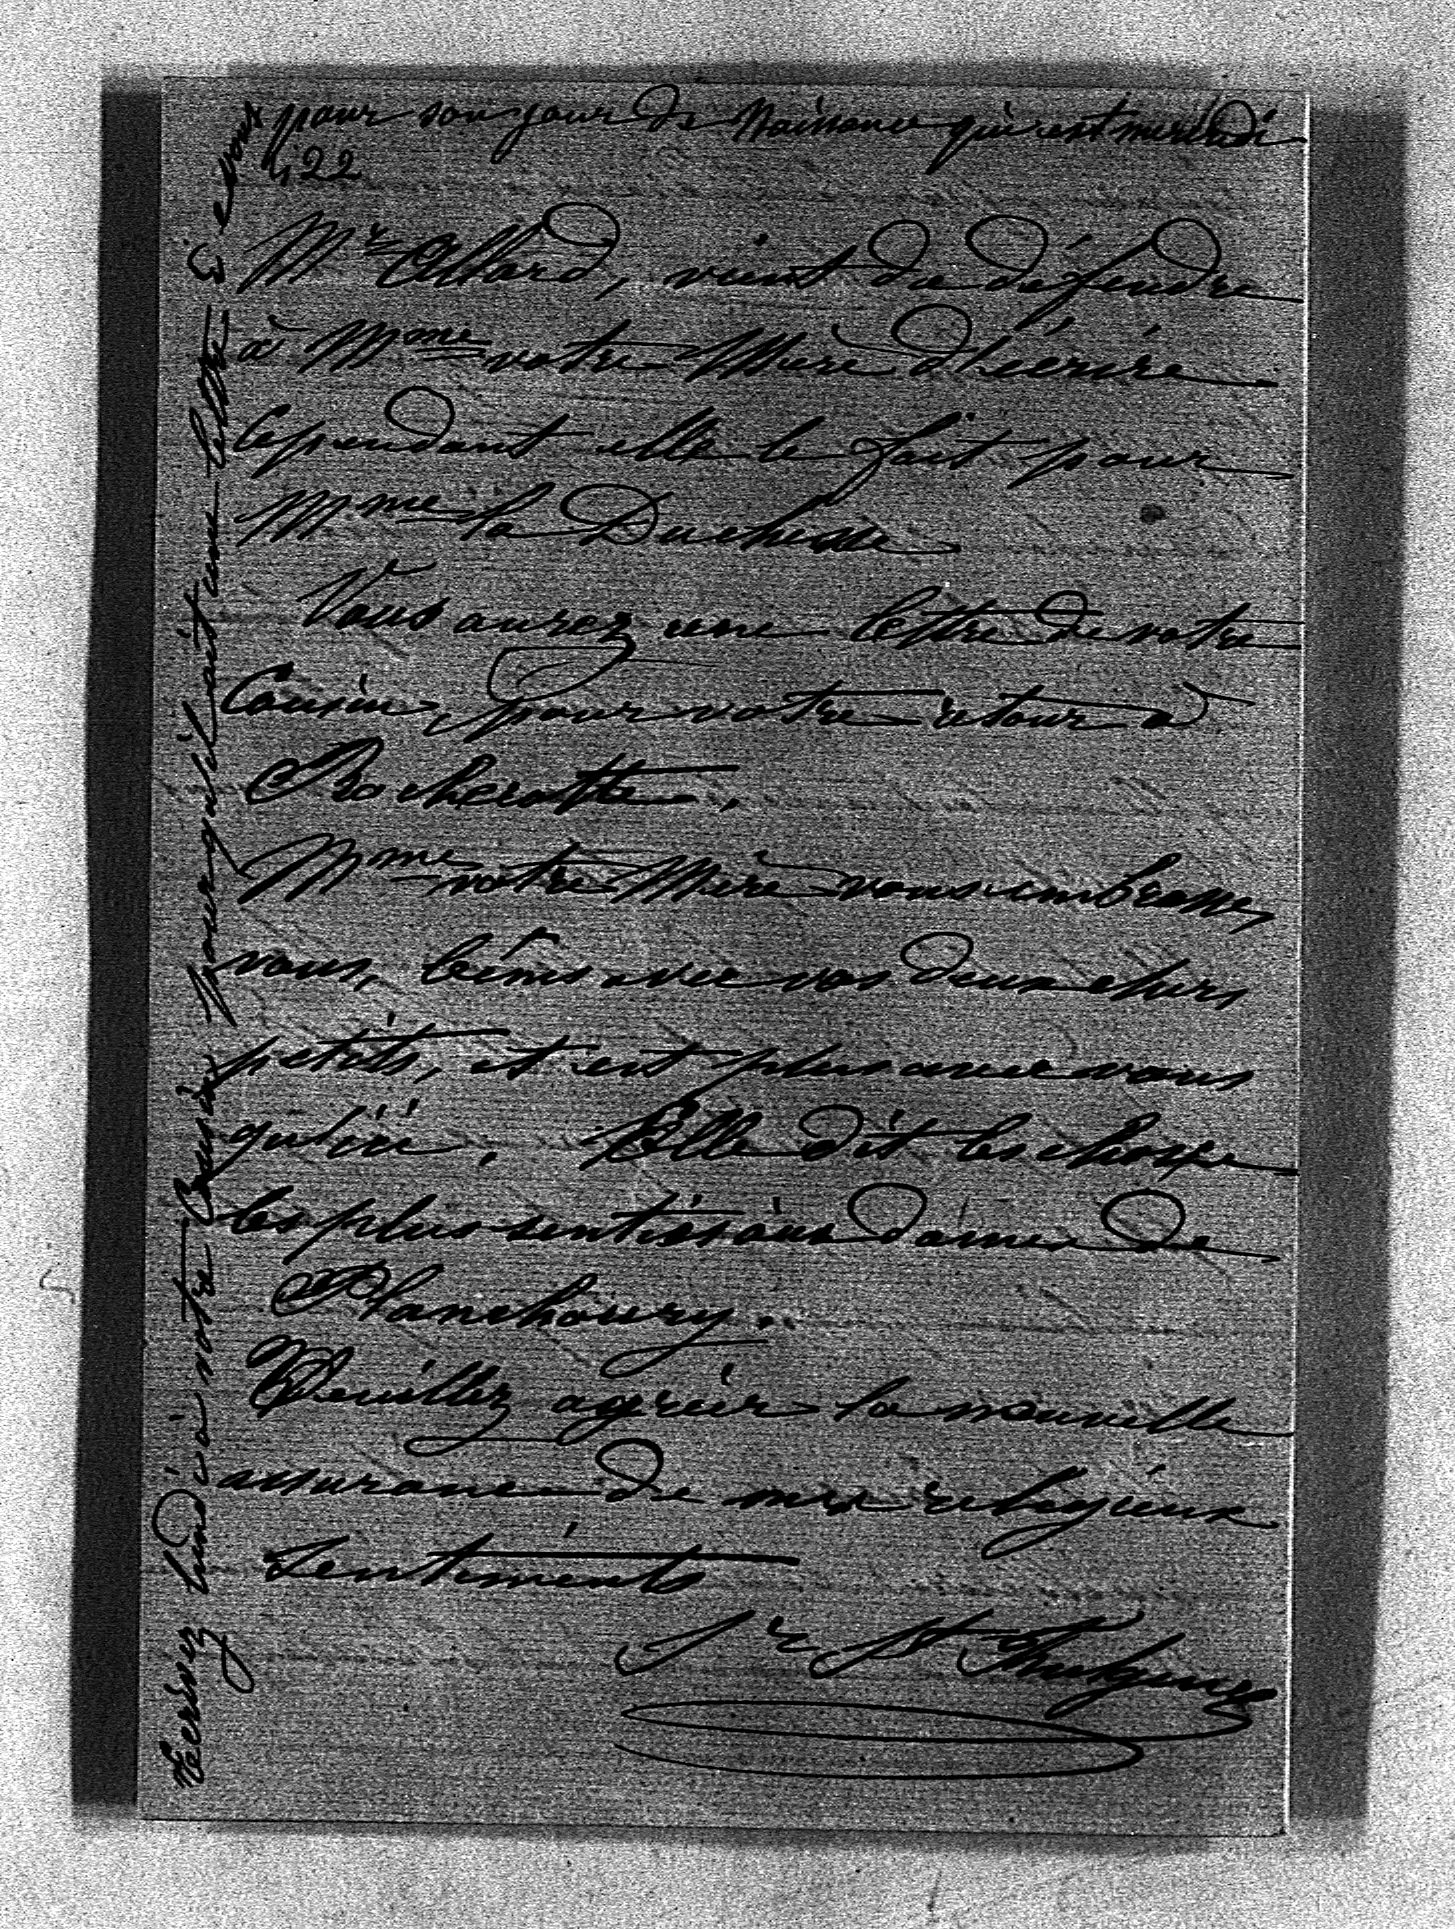 Ecrivez lundi à votre Cousin pour qu'il ait une lettre
pour son jour de Naissance qui est mercredi
22
Mr Allard, vient de défendre
à Mme votre Mère d'écrire
Cependant elle le fait pour
Mme la Duchesse
Vous aurez une lettre de votre
Cousin, pour votre retour à
Rochecotte.
Mme votre Mère vous embrasse,
vous, bénis avec vos deux chers
petits, et est plus avec vous
qu'ici. Elle dit les choses
les plus senties aux dames de
Planchoury.
Veuillez agréer la nouvelle
assurance de mes religieux
Sentiments
Sr St